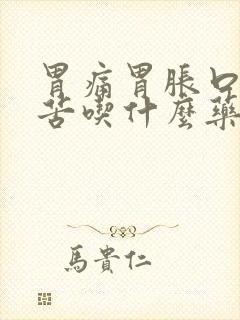 胃痛胃脹口
苦喫什麼藥
馬貴仁